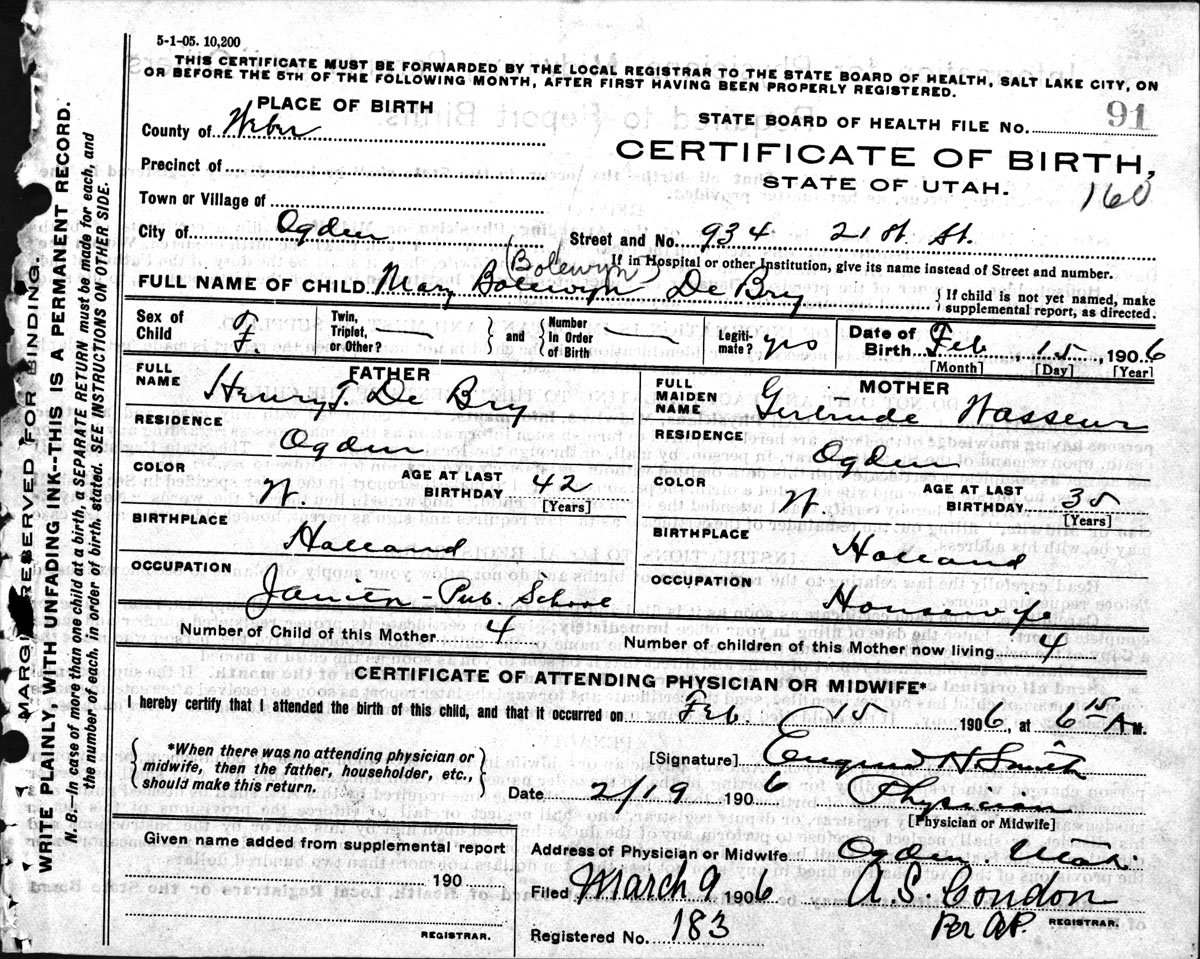 5-1-05. 10,200
THIS CERTIFICATE MUST BE FORWARDED BY THE LOCAL REGISTRAR TO THE STATE BOARD OF HEALTH, SALT LAKE CITY, ON
OR BEFORE THE 5TH OF THE FOLLOWING MONTH, AFTER FIRST HAVING BEEN PROPERLY REGISTERED.
PLACE OF BIRTH
STATE BOARD OF HEALTH FILE No. 91
County of Weber
CERTIFICATE OF BIRTH,
Precinct of
STATE OF UTAH.
160
Town or Village of
City of Ogden
Street and No. 934 21st. St.
(Bolewyn)
If in Hospital or other Institution, give its name instead of Street and number.
FULL NAME OF CHILD Mary Bolewyn De Bry
} If child is not yet named, make
supplemental report, as directed.
Sex of
Child F.
Twin,
Triplet,
or Other?
} and {
Number
In Order
of Birth
Legiti-
mate? yes
Date of
Birth Feb 15, 1906
[Month] [Day] [Year]
FATHER
FULL
NAME Henry T. De Bry
MOTHER
FULL
MAIDEN
NAME Gertrude Wasseur
RESIDENCE
Ogden
RESIDENCE
Ogden
COLOR W.
AGE AT LAST
BIRTHDAY 42
[Years]
COLOR W.
AGE AT LAST
BIRTHDAY 35
[Years]
BIRTHPLACE
Holland
BIRTHPLACE
Holland
OCCUPATION
Janitor - Pub. School
OCCUPATION
Housewife
Number of Child of this Mother 4
Number of children of this Mother now living 4
CERTIFICATE OF ATTENDING PHYSICIAN OR MIDWIFE*
I hereby certify that I attended the birth of this child, and that it occurred on Feb 15 1906, at 6 15 A M.
{ *When there was no attending physician or
midwife, then the father, householder, etc.,
should make this return. }
[Signature] H Smith
Date 2/19 1906 Physician
[Physician or Midwife]
Given name added from supplemental report
190
REGISTRAR.
Address of Physician or Midwife Ogden. Utah.
Filed March 9 1906 A. S. Condon
Per A.P. REGISTRAR.
Registered No. 183
MARGIN RESERVED FOR BINDING.
WRITE PLAINLY, WITH UNFADING INK--THIS IS A PERMANENT RECORD.
N. B.--In case of more than one child at a birth, a SEPARATE RETURN must be made for each, and
the number of each, in order of birth, stated. SEE INSTRUCTIONS ON OTHER SIDE.